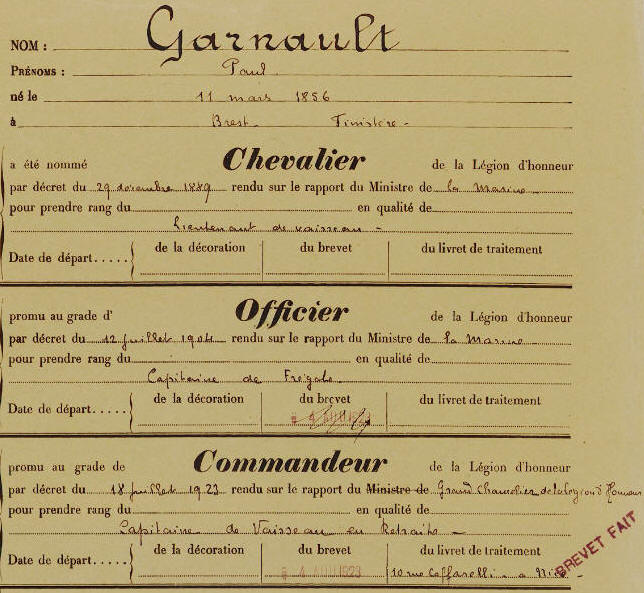 NOM : Garnault
PRÉNOMS : Paul
né le 11 mars 1856
à Brest Finistère
a été nommé Chevalier de la Légion d'honneur
par décret du 29 décembre 1889 rendu sur le rapport du Ministre de la Marine
pour prendre rang du en qualité de
Lieutenant de vaisseau
Date de départ..... de la décoration du brevet du livret de traitement
promu au grade d' Officier de la Légion d'honneur
par décret du 12 juillet 1904 rendu sur le rapport du Ministre de la Marine
pour prendre rang du en qualité de
Capitaine de Frégate
Date de départ..... de la décoration du brevet du livret de traitement
promu au grade de Commandeur de la Légion d'honneur
par décret du 18 juillet 1923 rendu sur le rapport du Ministre de Grand Chancelier de la Légion d'Honneur
pour prendre rang du en qualité de
Capitaine de Vaisseau en Retraite
Date de départ..... de la décoration du brevet du livret de traitement
4 1923 10 rue Caffarelli a Nice
BREVET FAIT